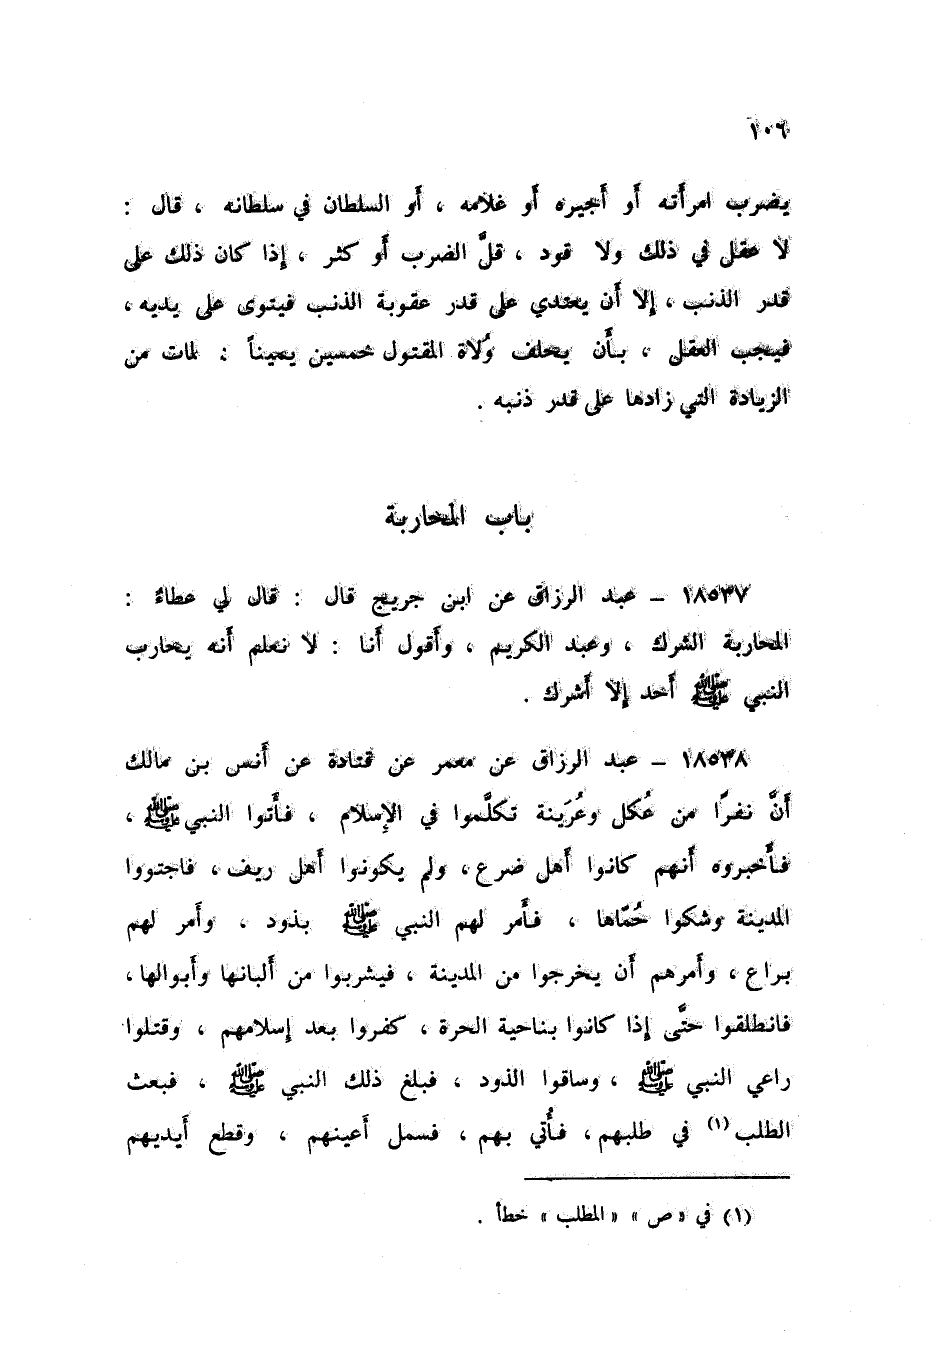 ١٠٦
يضرب امرأته أو أجيره أو غلامه ، أو السلطان في سلطانه ، قال :
لا عقل في ذلك ولا قود ، قلَّ الضرب أو كثر ، إذا كان ذلك على
قدر الذنب ، إلا أن يعتدي على قدر عقوبة الذنب فيتوى على يديه ،
فيجب العقل ، بأن يحلف وُلاة المقتول خمسين يميناً : لمات من
الزيادة التي زادها على قدر ذنبه .
باب المحاربة
١٨٥٣٧ – عبد الرزاق عن ابن جريج قال : قال لي عطاءٌ :
المحاربة الشرك ، وعبد الكريم ، وأقول أنا : لا نعلم أنه يحارب
النبي ﷺ أحد إلا أشرك .
١٨٥٣٨ – عبد الرزاق عن معمر عن قتادة عن أنس بن مالك
أنَّ نفرًا من عُكل وعُرَينة تكلَّموا في الإسلام ، فأتوا النبي ﷺ ،
فأخبروه أنهم كانوا أهل ضرع ، ولم يكونوا أهل ريف ، فاجتووا
المدينة وشكوا حُمّاها ، فأمر لهم النبي ﷺ بذود ، وأمر لهم
براع ، وأمرهم أن يخرجوا من المدينة ، فيشربوا من ألبانها وأبوالها ،
فانطلقوا حتَّى إذا كانوا بناحية الحرة ، كفروا بعد إسلامهم ، وقتلوا
راعي النبي ﷺ ، وساقوا الذود ، فبلغ ذلك النبي ﷺ ، فبعث
الطلب (١) في طلبهم ، فأُتي بهم ، فسمل أعينهم ، وقطع أيديهم
(١) في «ص» «المطلب» خطأ .